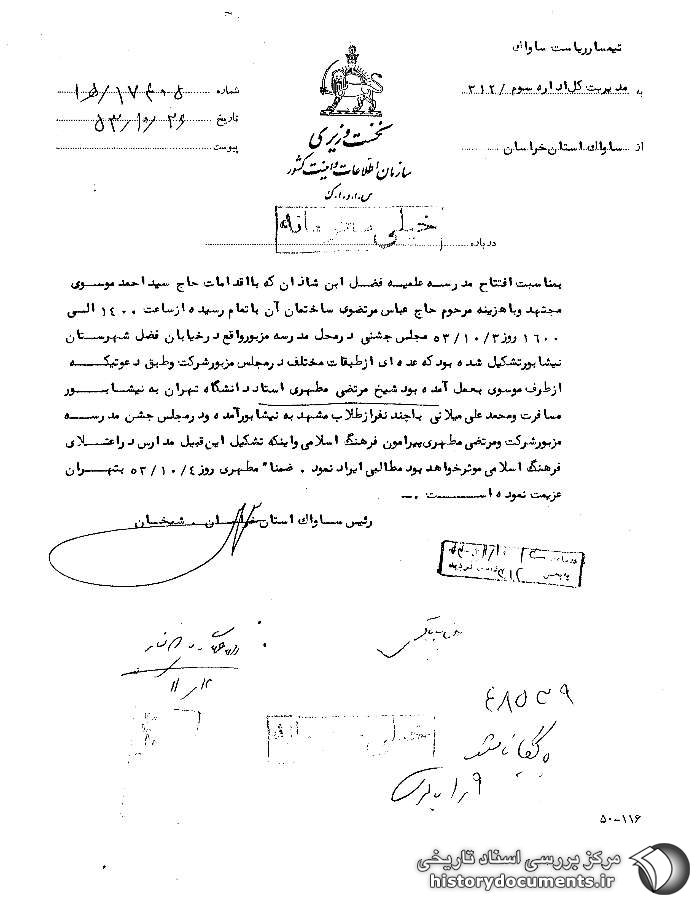 تیمسار ریاست ساواک
به مدیریت کل اداره سوم / ۳۱۲
از ساواك استان خراسان
شماره
تاریخ ۵۳/۱۰/۲۶
پیوست
نخست وزیری
سازمان اطلاعات و امنیت کشور
س.ا.و.ا.ک
خیلی محرمانه
درباره
بمناسبت افتتاح مدرسه علمیه فضل ابن شاذان که با اقدامات حاج سید احمد موسوی
مجتهد و با هزینه مرحوم حاج عباس مرتضوی ساختمان آن با تمام رسیده از ساعت ۱۴۰۰ الی
۱۶۰۰ روز ۵۳/۱۰/۳ مجلس جشنی در محل مدرسه مزبور واقع در خیابان فضل شهرستان
نیشابور تشکیل شده بود که عده ای از طبقات مختلف در مجلس مزبور شرکت و طبق دعوتیکه
از طرف موسوی بعمل آمده بود شیخ مرتضی مطهری استاد دانشگاه تهران به نیشابور
مسافرت و محمد علی میلانی با چند نفر از طلاب مشهد به نیشابور آمده و در مجلس جشن مدرسه
مزبور شرکت و مرتضی مطهری پیرامون فرهنگ اسلامی و اینکه تشکیل این قبیل مدارس در اعتلای
فرهنگ اسلامی موثر خواهد بود مطالبی ایراد نمود . ضمنا" مطهری روز ۵۳/۱۰/۴ بتهران
عزیمت نموده است .
رئیس ساواك استان خراسان . شیخان
۱۱/۱۲
۴۸۵۳۹
خیلی محرمانه
۵۰-۱۱۶
مرکز بررسی اسناد تاریخی
historydocuments.ir